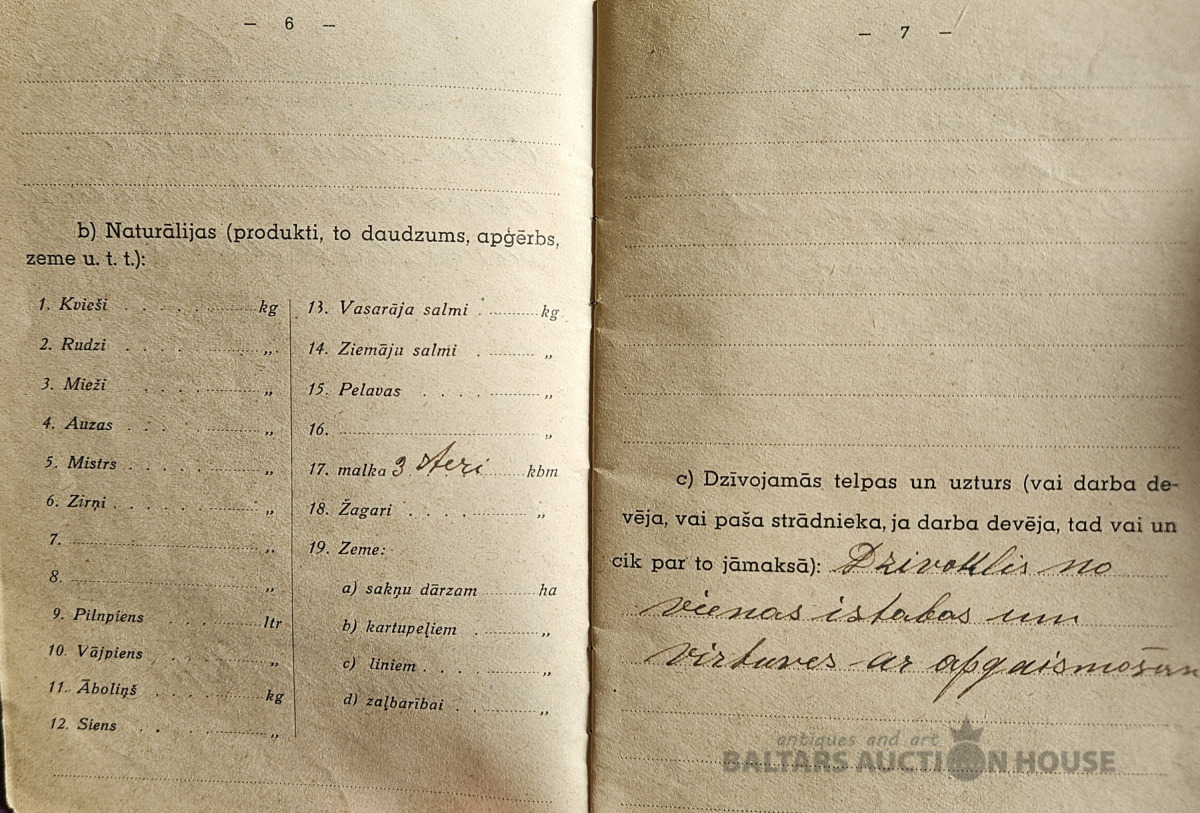 — 6 —
b) Naturālijas (produkti, to daudzums, apģērbs,
zeme u. t. t.):
1. Kvieši . . . . kg
2. Rudzi . . . . „
3. Mieži . . . . „
4. Auzas . . . . „
5. Mistrs . . . . „
6. Zirņi . . . . „
7. „
8. „
9. Pilnpiens . . ltr
10. Vājpiens . . „
11. Āboliņš . . . kg
12. Siens . . . „
13. Vasarāja salmi . kg
14. Ziemāju salmi . „
15. Pelavas . . . . „
16. „
17. malka 3 steri kbm
18. Žagari . . . . „
19. Zeme:
a) sakņu dārzam ha
b) kartupeļiem . „
c) liniem . . . „
d) zaļbarībai . . „
— 7 —
c) Dzīvojamās telpas un uzturs (vai darba de-
vēja, vai paša strādnieka, ja darba devēja, tad vai un
cik par to jāmaksā): Dzivoklis no
vienas istabas un
virtuves ar apgaismošan
antiques and art
BALTARS AUCTION HOUSE